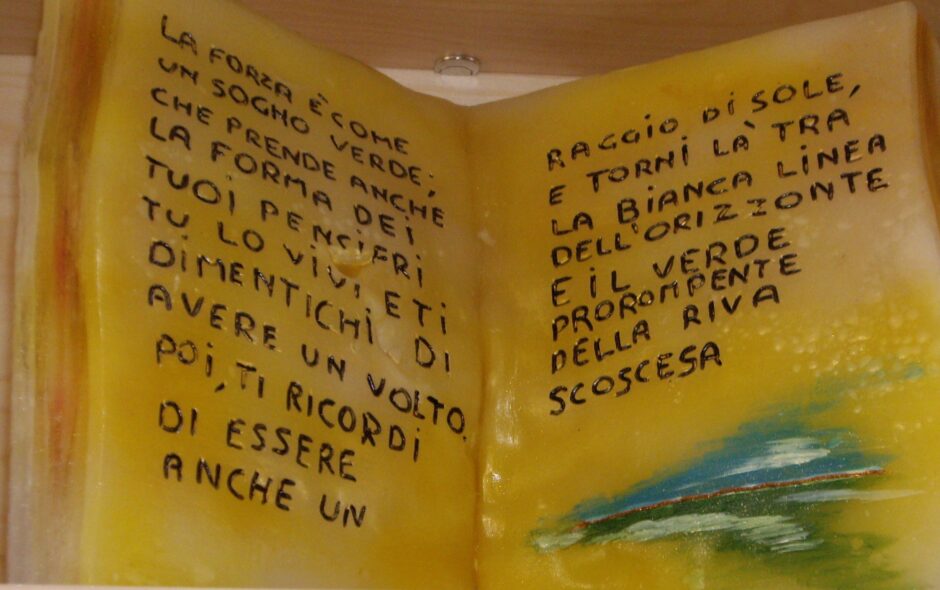 LA FORZA È COME
UN SOGNO VERDE;
CHE PRENDE ANCHE
LA FORMA DEI
TUOI PENSIERI
TU LO VIVI E TI
DIMENTICHI DI
AVERE UN VOLTO.
POI, TI RICORDI
DI ESSERE
ANCHE UN
RAGGIO DI SOLE,
E TORNI LÀ TRA
LA BIANCA LINEA
DELL'ORIZZONTE
E IL VERDE
PROROMPENTE
DELLA RIVA
SCOSCESA